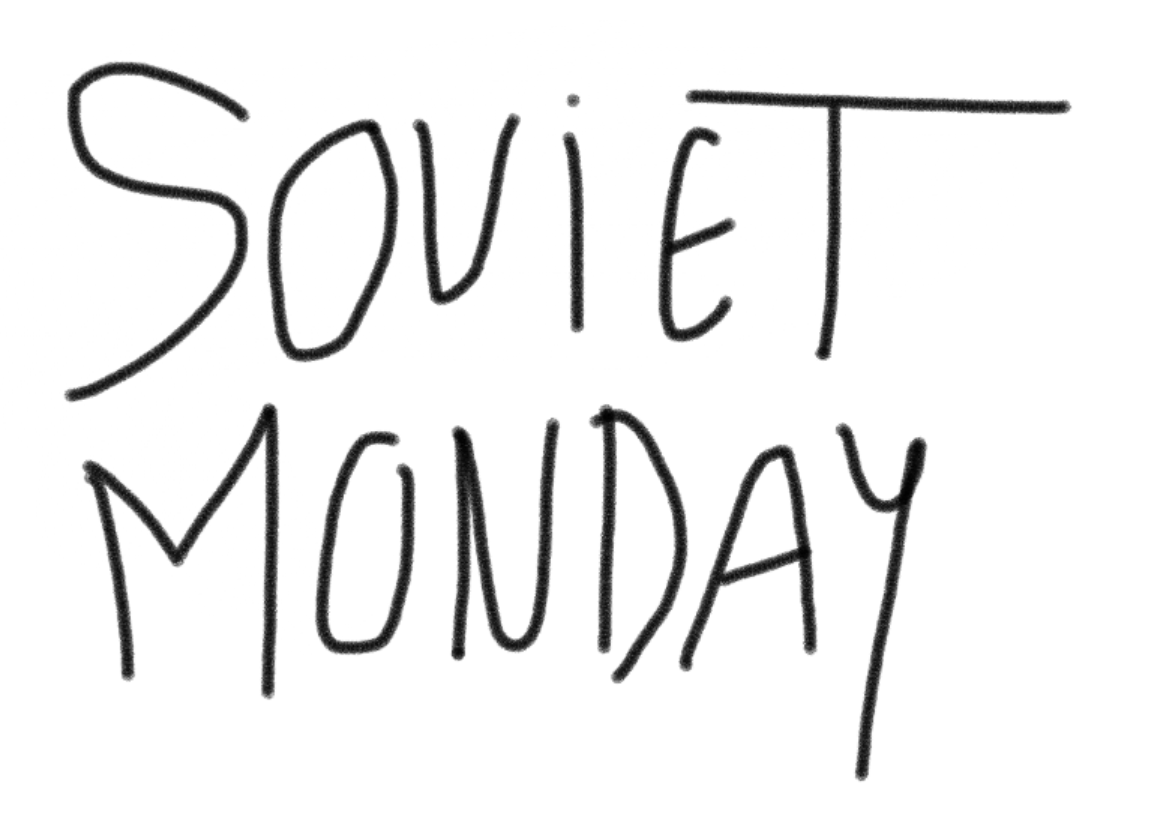 SOViET
MONDAY